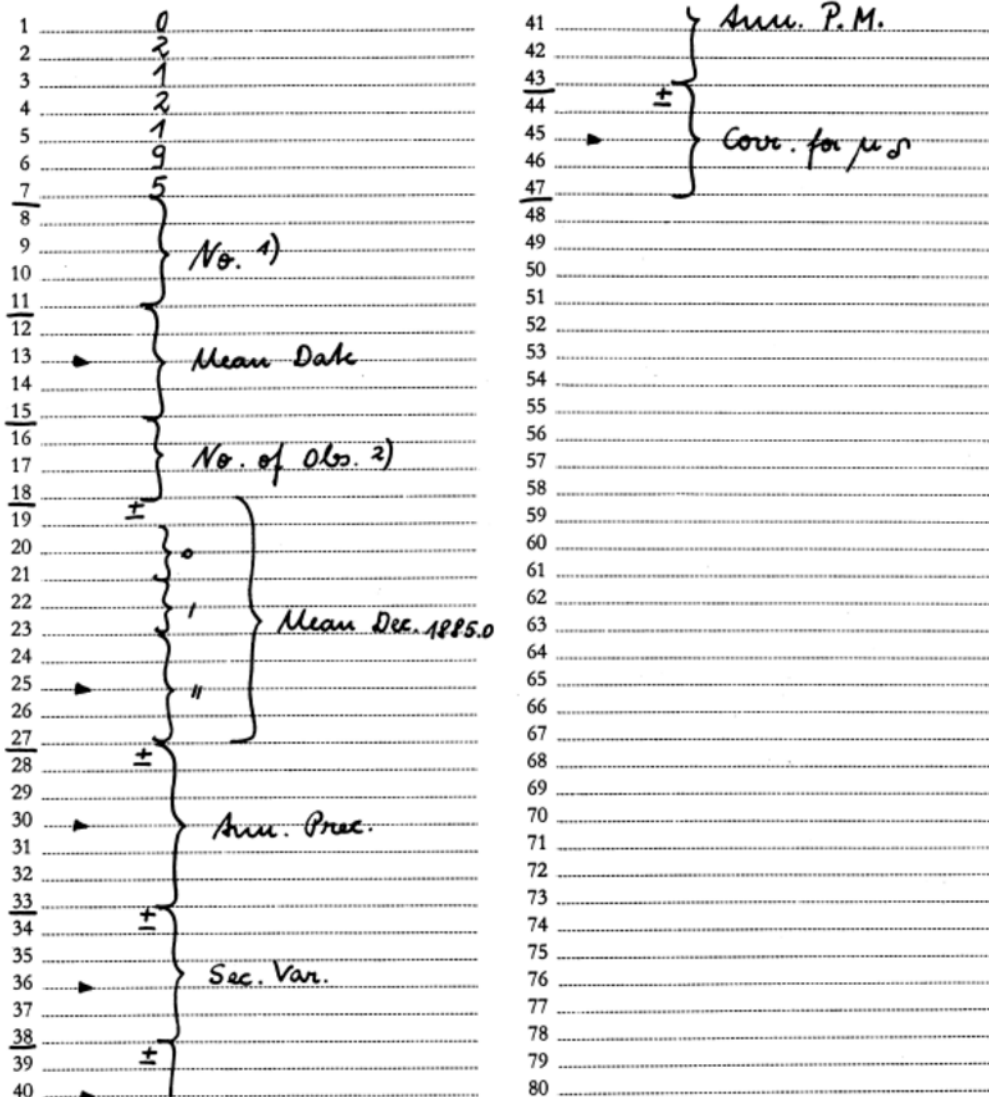 1 0
2 2
3 1
4 2
5 1
6 9
7 5
8
9 No. 1)
10
11
12
13 Mean Date
14
15
16
17 No. of Obs. 2)
18
±
19
20 °
21
22 '
23 Mean Dec. 1885.0
24
25 "
26
27
±
28
29
30 Ann. Prec.
31
32
33
±
34
35
36 Sec. Var.
37
38
±
39
40
41 Ann. P. M.
42
43
±
44
45 Corr. for μ δ
46
47
48
49
50
51
52
53
54
55
56
57
58
59
60
61
62
63
64
65
66
67
68
69
70
71
72
73
74
75
76
77
78
79
80